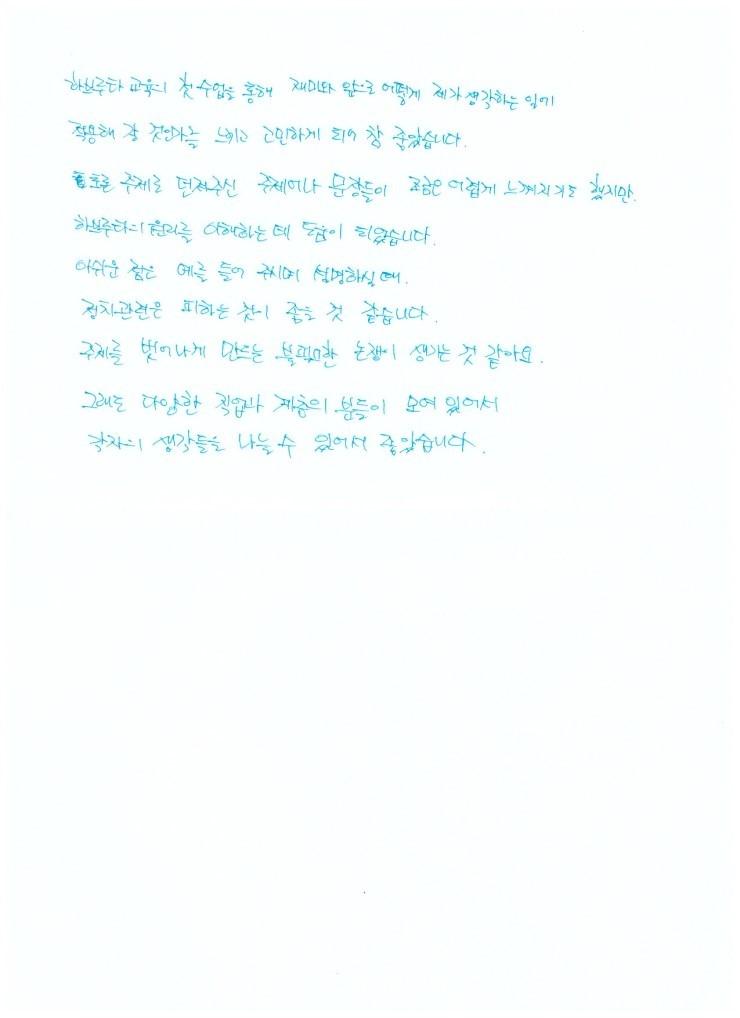 하브루타 교육의 첫 수업을 통해 재미와 앞으로 어떻게 제가 생각하는 일에
적용해 갈 것인가를 느끼고 고민하게 되어 참 좋았습니다.
토론 주제로 던져주신 주제어나 문장들이 조금은 어렵게 느껴지기도 했지만.
하브루타의 원리를 이해하는데 도움이 되었습니다.
아쉬운 점은 예를 들어 주시며 설명하실 때.
정치관련은 피하는 것이 좋을 것 같습니다.
주제를 벗어나게 만드는 불필요한 논쟁이 생기는 것 같아요.
그래도 다양한 직업과 계층의 분들이 모여 있어서
각자의 생각들을 나눌 수 있어서 좋았습니다.